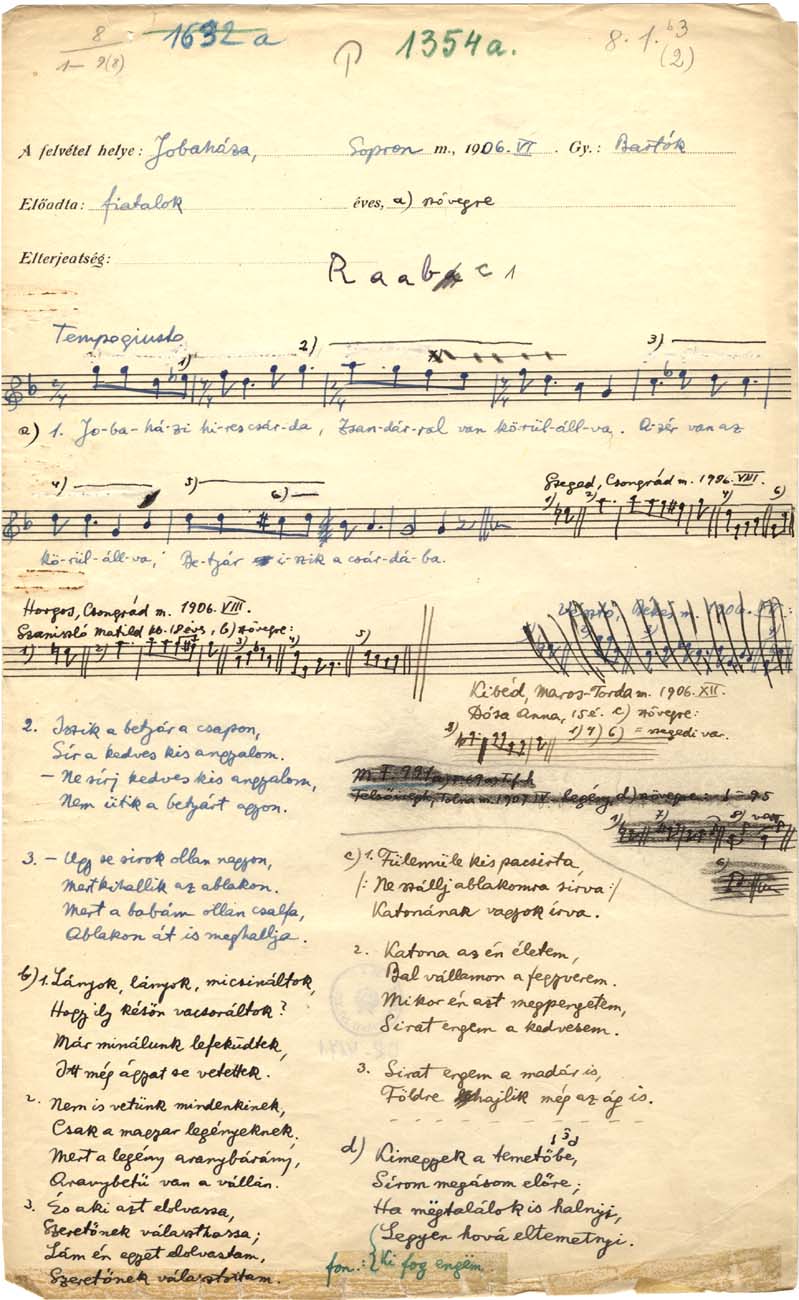 8
1— 9(8)
1632 a
P
1354a.
8. I. b3
(2)
A felvétel helye: Jobaháza, Sopron m., 1906. VI. Gy.: Bartók
Előadta: fiatalok éves, a) szövegre
Elterjeatség:
Raab c 1
Tempo giusto
1) 2) 3)
a) 1. Jo-ba-há-zi hi-res csár-da, Zsan-dár-ral van kö-rül-áll-va. A-zér van az
4) 5) 6)
Szeged, Csongrád m. 1906. VIII.
1) 2) 4) 6)
kö-rül-áll-va, Be-tjár i-szik a csár-dá-ba.
Horgos, Csongrád m. 1906. VIII.
Szaniszló Matild kb. 18 éves, b) szövegre:
1) 2) 3) 4) 5)
Vésztő, Békés m. 1906.
Kibéd, Maros-Torda m. 1906. XII.
Dósa Anna, 15 é. c) szövegre:
3) 1) 4) 6) = szegedi var.
2. Iszik a betjár a csapson,
Sír a kedves kis angyalom.
— Ne sírj kedves kis angyalom,
Nem ütik a betjárt agyon.
M. F. 991a)
Felsőiregh, Tolna m. 1907. IV. legény, d) szövegre:
1) 7) 8) var.
6)
3. — Úgy se sirok ollan nagyon,
Mert kihallik az ablakon.
Mert a babám ollan csalfa,
Ablakon át is meghallja.
b) 1. Lányok, lányok, micsináltok,
Hogy ily késön vacsoráltok?
Már minálunk lefeküdtek,
Itt még ágyat se vetettek.
2. Nem is vetünk mindenkinek,
Csak a magyar legényeknek.
Mert a legény aranybárány,
Aranybetü van a vállán.
3. És aki azt elolvassa,
Szeretőnek választhassa;
Lám én egyet elolvastam,
Szeretőnek választottam.
c) 1. Fülemüle kis pacsirta,
/: Ne szállj ablakomra sirva :/
Katonának vagyok írva.
2. Katona az én életem,
Bal vállamon a fegyverem.
Mikor én azt megpengetem,
Sirat engem a kedvesem.
3. Sirat engem a madár is,
Földre hajlik még az ág is.
d) Kimegyek a temetőbe,
Sírom megásom előre;
Ha mëgtalálok is halnyi,
Legyen hová eltemetnyi.
fon.: Ki fog engëm